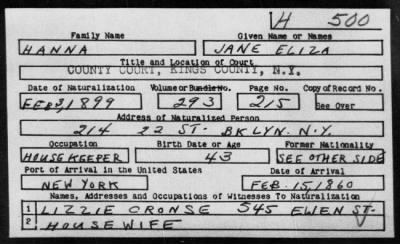 H 500
Family Name Given Name or Names
HANNA JANE ELIZA
Title and Location of Court
COUNTY COURT, KINGS COUNTY, N.Y.
Date of Naturalization Volume or Bundle No. Page No. Copy of Record No.
1899 293 215 See Over
Address of Naturalized Person
214 22 ST. BKLYN. N.Y.
Occupation Birth Date or Age Former Nationality
HOUSEKEEPER 43 SEE OTHER SIDE
Port of Arrival in the United States Date of Arrival
NEW YORK FEB. 15, 1860
Names, Addresses and Occupations of Witnesses To Naturalization
1 LIZZIE CRONSE 545 EWEN ST.
2 HOUSEWIFE